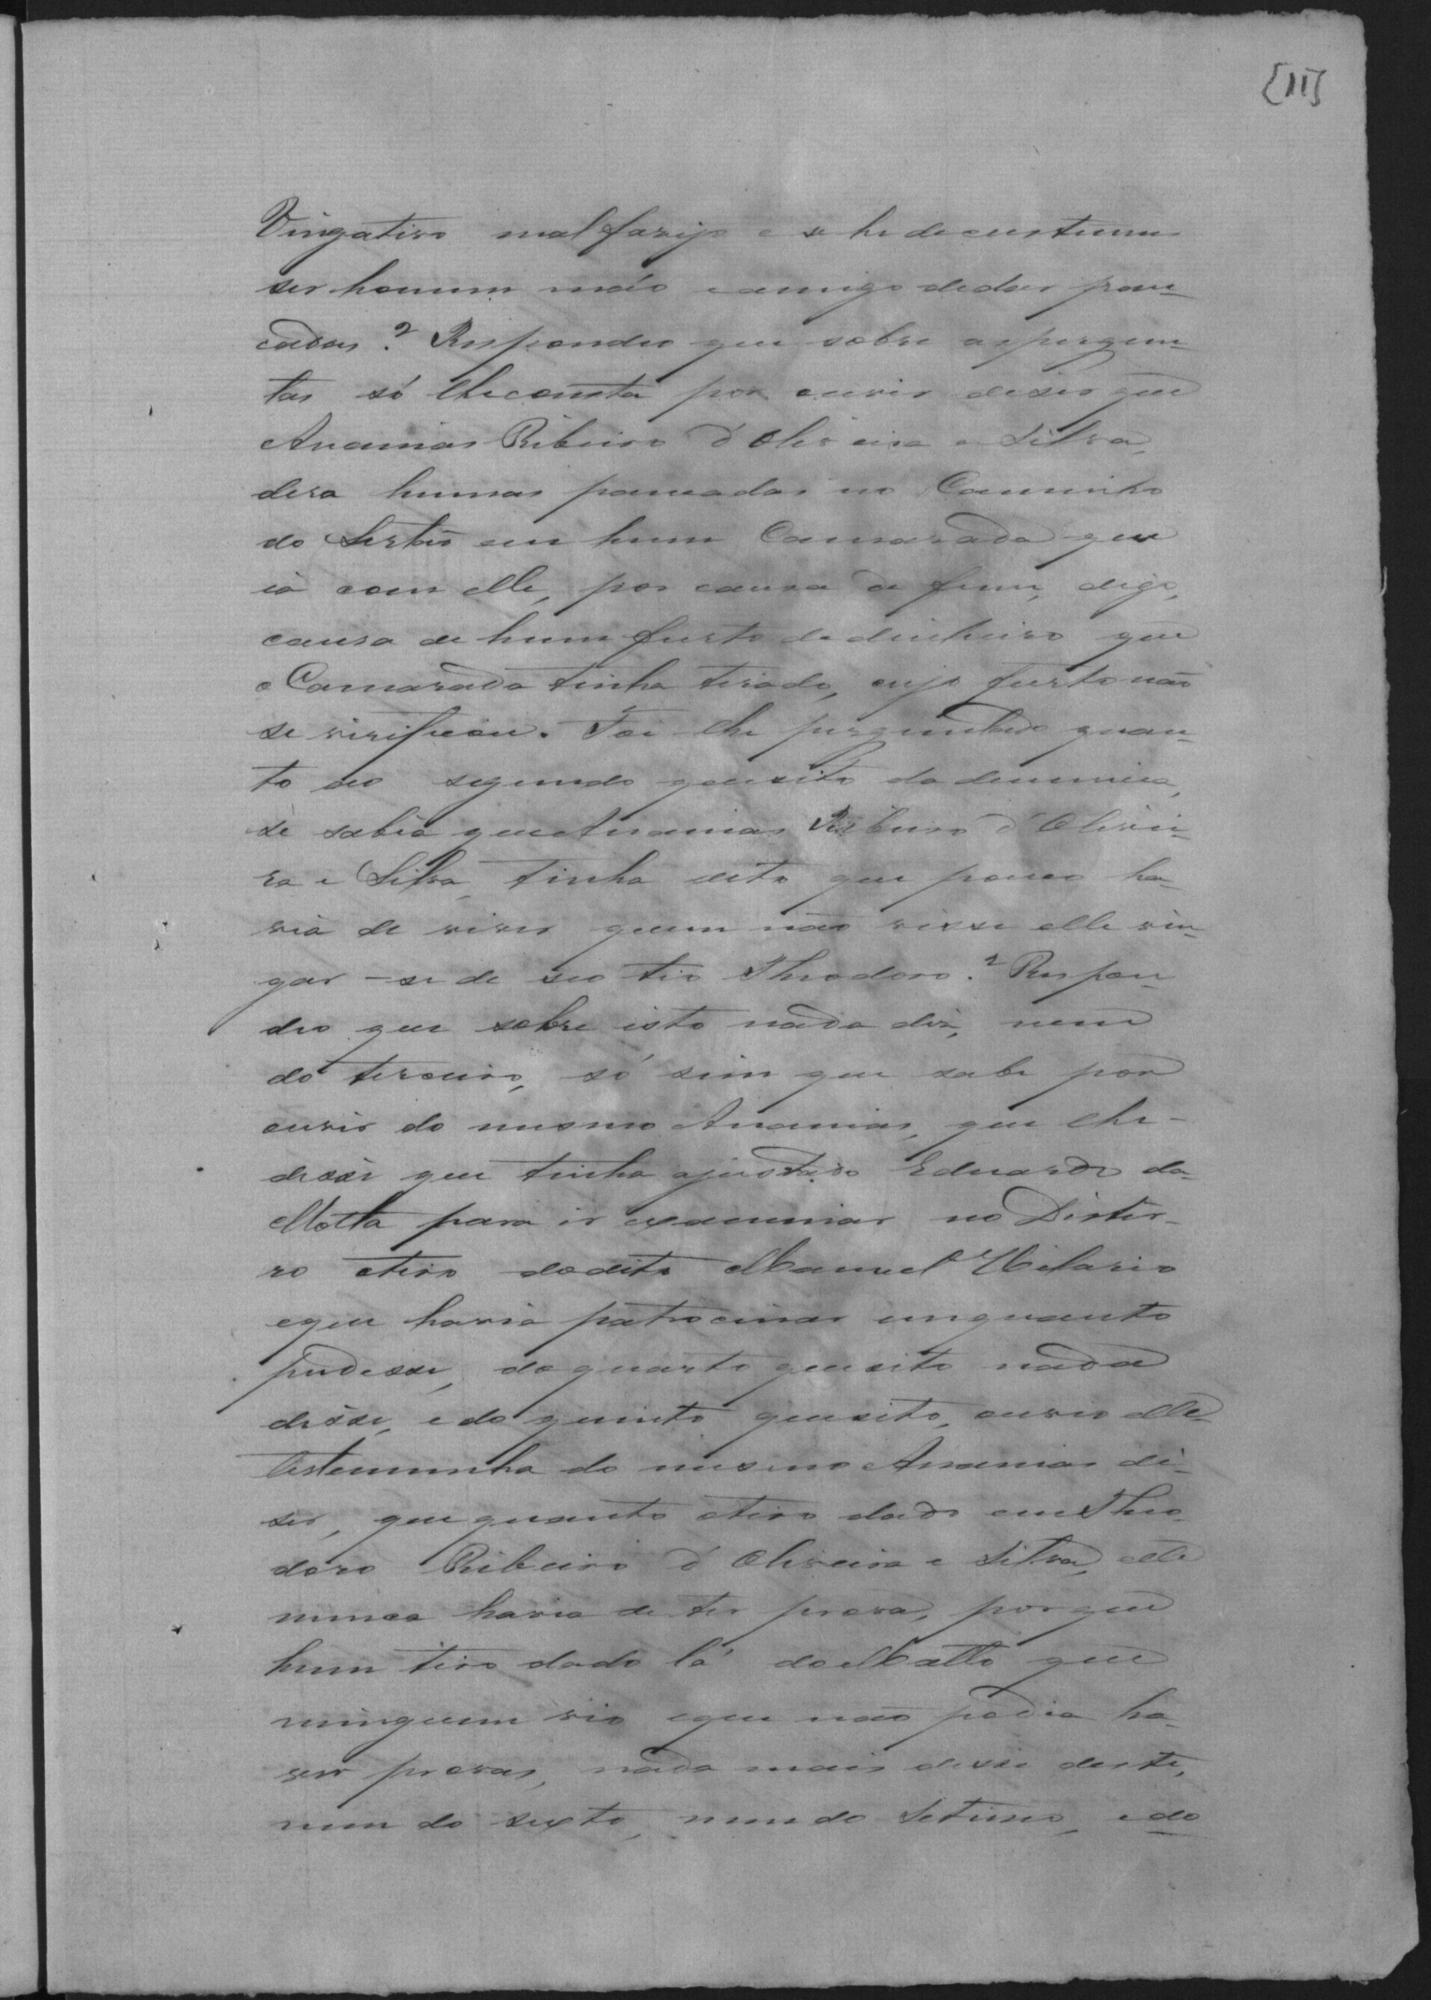 [11]
Vingativo malfazejo e se he de custume
ser homem máo e amigo dedar pan-
cadas? Respondeo que sobre aspergun-
tas só lheconsta por ouvir dizer que
Ananias Ribeiro d'Oliveira e Silva,
dera humas pancadas no Caminho
do Sertão em hum Camarada que
ia com elle, por causa de fum, digo,
causa de hum furto de dinheiro que
o Camarada tinha tirado, cujo furto não
se virificou. Foi lhe perguntado quan-
to ao segundo quesito da denuncia,
se sabia queAnanias Ribeiro d'Olivei-
ra e Silva, tinha dito que pouco ha-
via de viver quem não visse elle vin-
gar-se de seo tio Theodoro? Respon-
deo que sobre isto nada diz, nem
do terceiro, só sim que sabe por
ouvir do mesmo Ananias, que lhe-
disse que tinha ajustado Eduardo da
Motta para ir examinar no Dester-
ro otiro dodito Manuel Hilario
eque havia patrocinar emquanto
pudesse, do quarto quesito nada
disse, e do quinto quesito, ouvio elle
testemunha do mesmo Ananias di-
zer, que quanto otiro dado em Theo
doro Ribeiro d'Oliveira e Silva, elle
nunca havia de ter prova, por que
hum tiro dado lá do Matto que
ninguem vio eque não podia ha-
ver provas, nada mais disse deste,
nem do sexto, nem do Setimo, e do